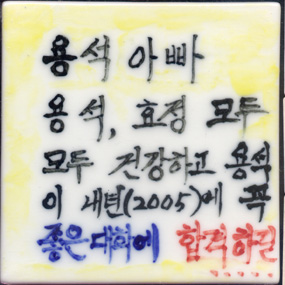 용석 아빠
용석, 효정 모두
모두 건강하고 용석
이 내년(2005)에 꼭
좋은대학에 합격하길
.....